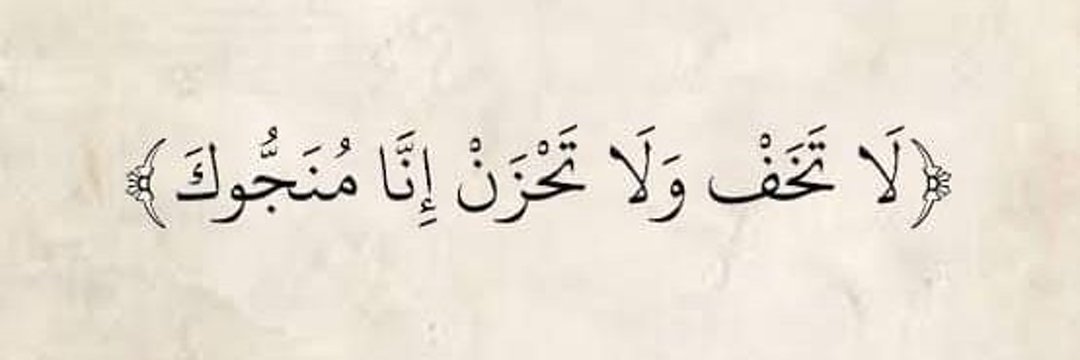 ﴿لَا تَخَفْ وَلَا تَحْزَنْ إِنَّا مُنَجُّوكَ﴾